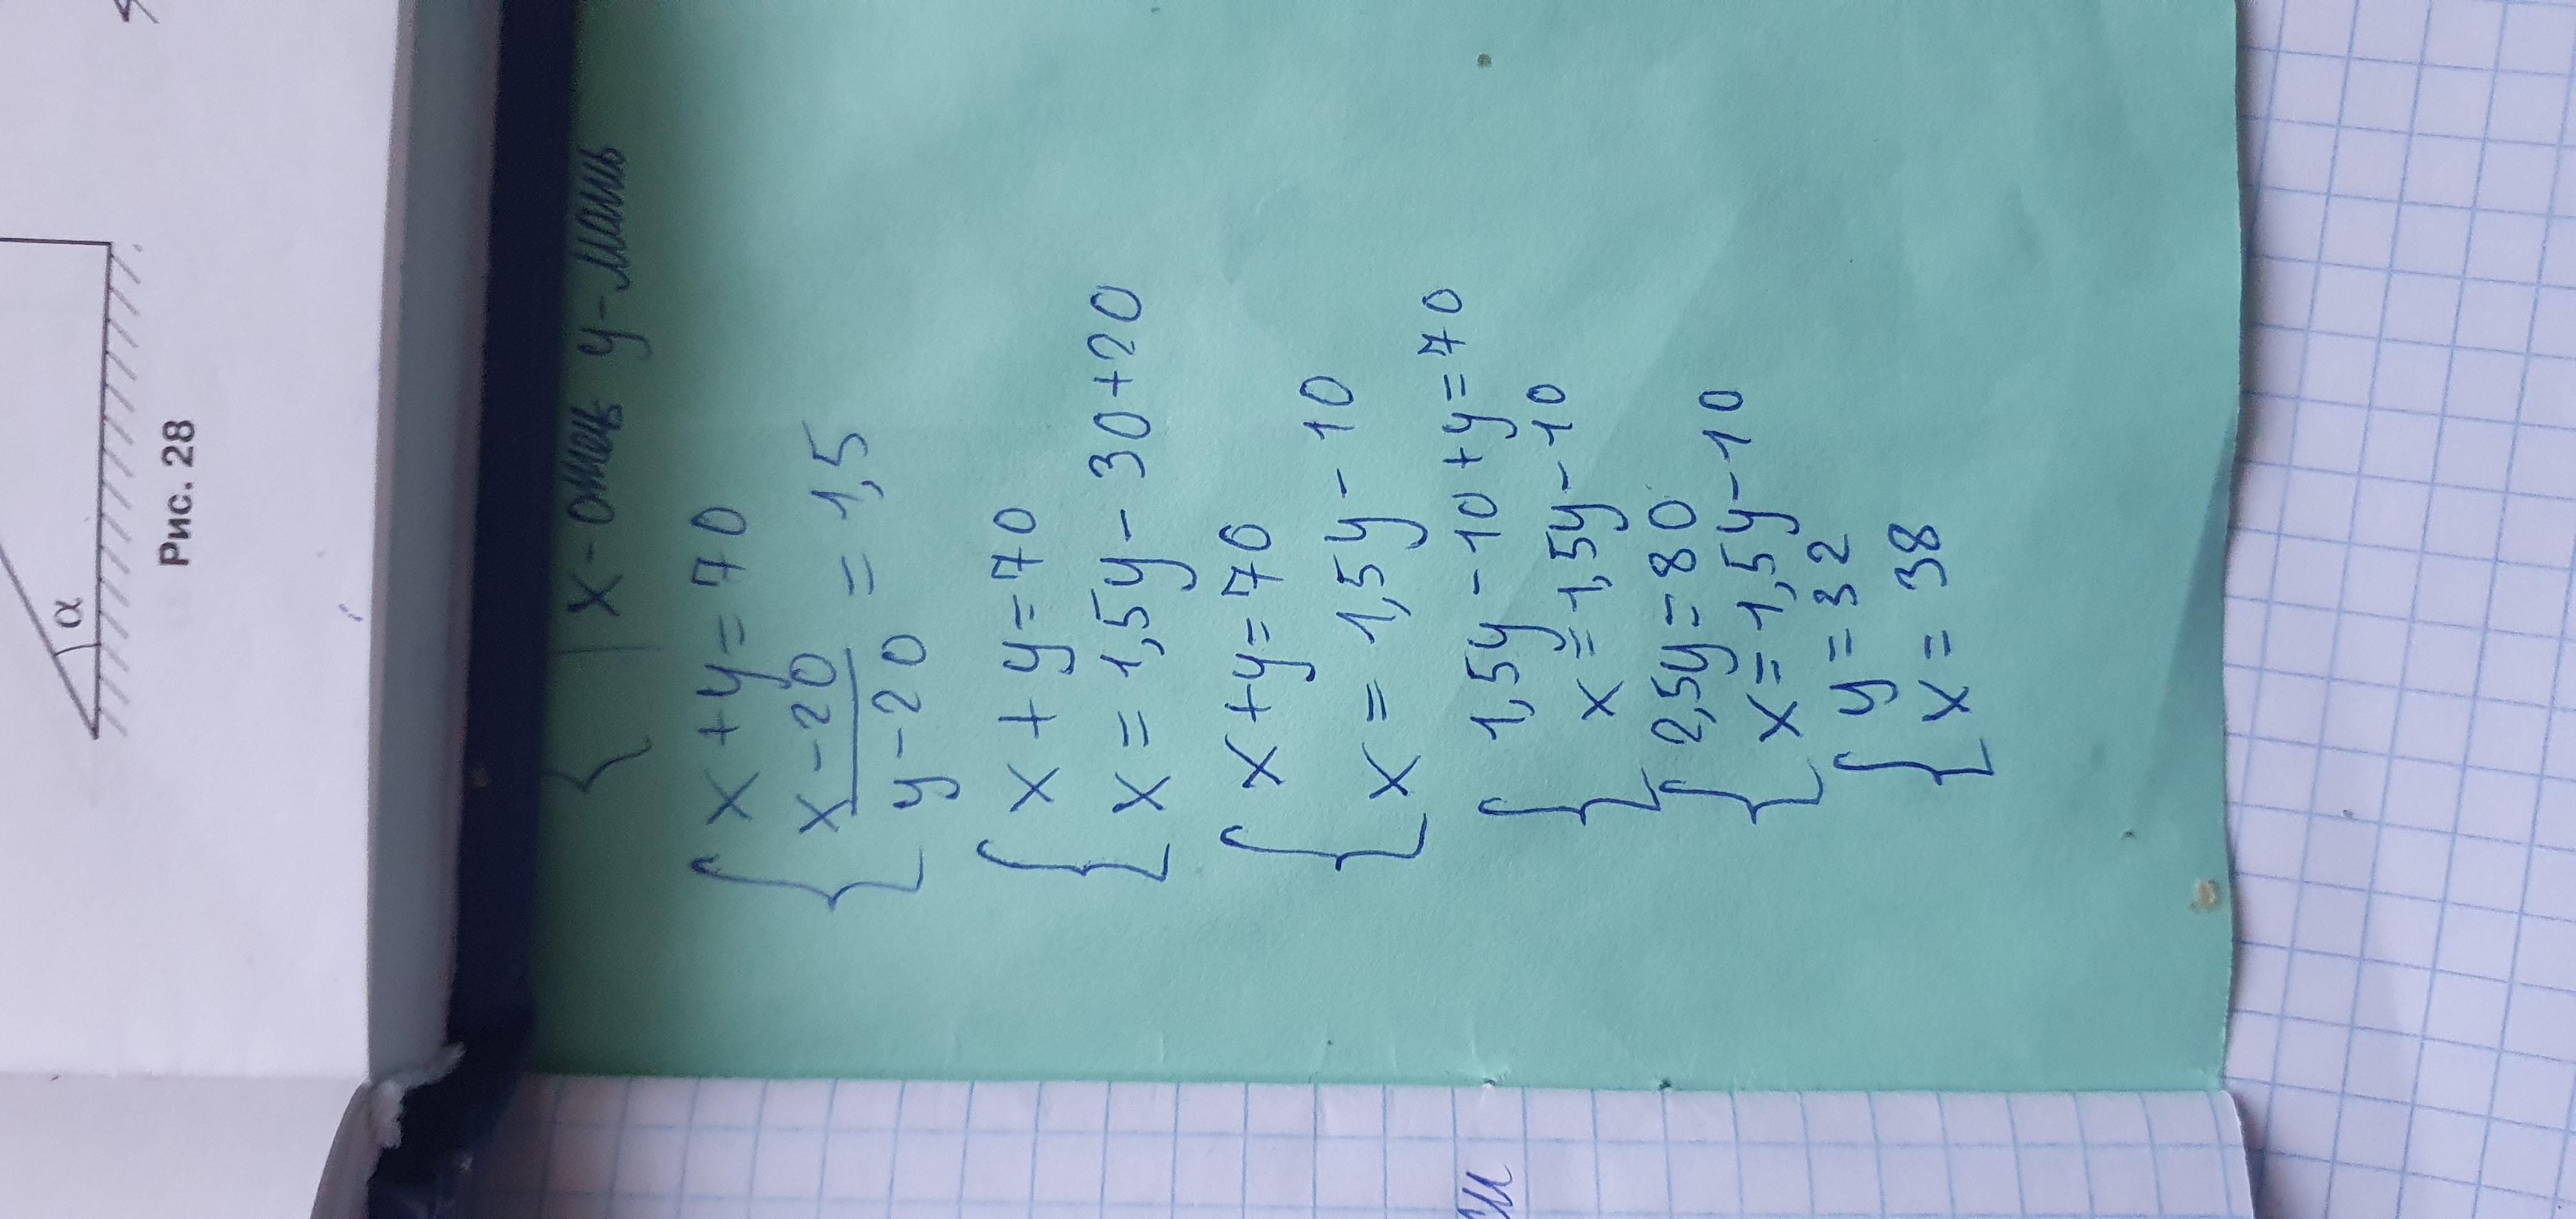 α
Рис. 28
x - отец y - мать
x + y = 70
x - 20
y - 20
= 1,5
x + y = 70
x = 1,5y - 30 + 20
x + y = 70
x = 1,5y - 10
1,5y - 10 + y = 70
x = 1,5y - 10
2,5y = 80
x = 1,5y - 10
y = 32
x = 38